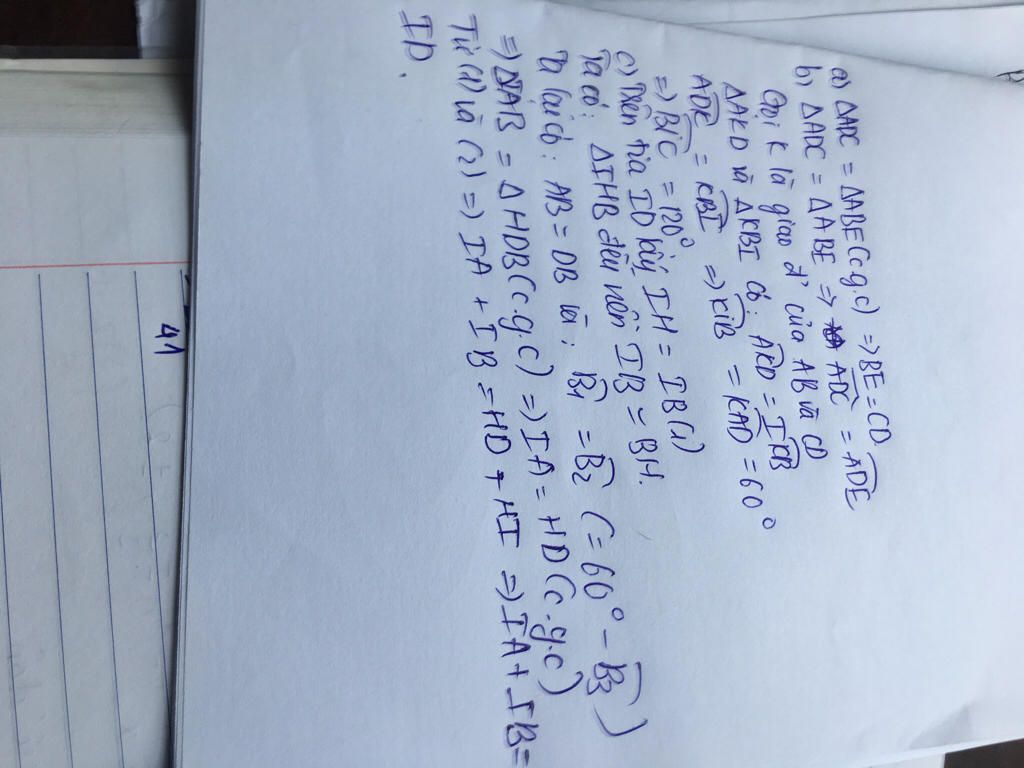 a) ΔADC = ΔABE (c.g.c) => BE = CD
b) ΔADC = ΔABE => ADC = ADE
Gọi K là giao đ' của AB và CD
ΔAKD và ΔKBI có: AKD = IKB
ADK = KBI => KIB = KAD = 60°
=> BIC = 120°
c) Trên tia ID lấy IH = IB (1)
Ta có: ΔIHB đều nên IB = BH.
Ta lại có: AB = DB và: B1 = B2 (= 60° - B3)
=> ΔIAB = ΔHDB (c.g.c) => IA = HD (c.g.c)
Từ (1) và (2) => IA + IB = HD + HI => IA + IB =
ID.
41